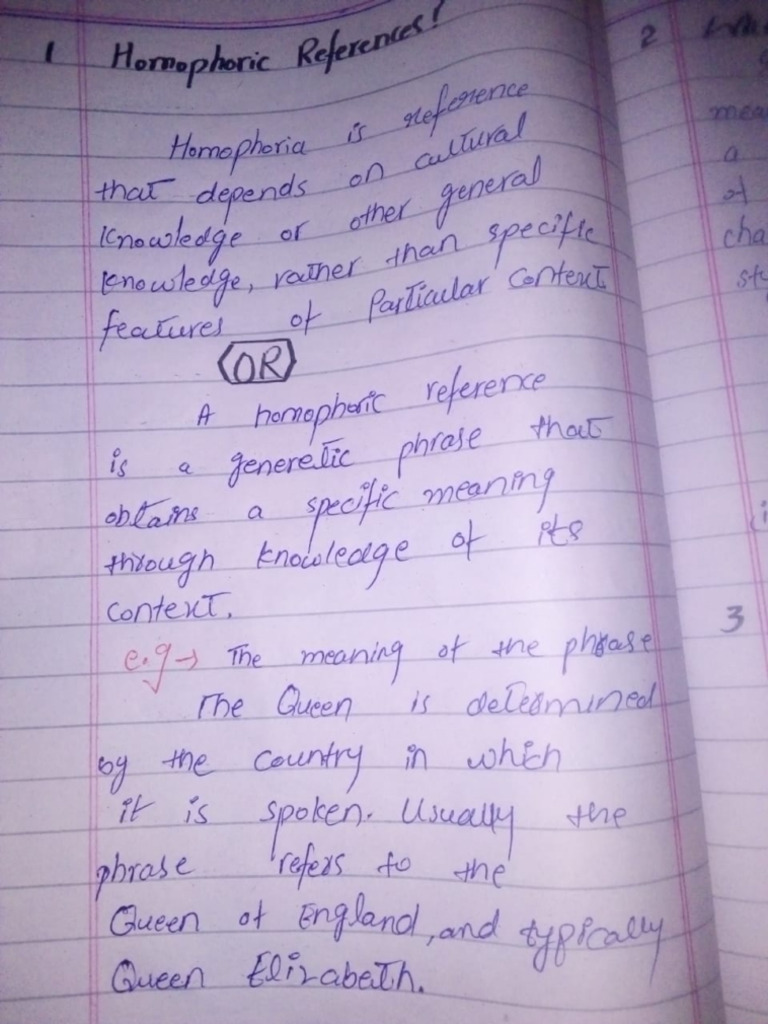 1 Homophoric References!
Homophoria is reference
that depends on cultural
knowledge or other general
knowledge, rather than specific
features of Particular Context
OR
A homophoric reference
is a generetic phrase that
obtains a specific meaning
through knowledge of its
context.
e.g → The meaning of the phrase
The Queen is determined
by the country in which
it is spoken. Usually the
phrase refers to the
Queen of England, and typically
Queen Elizabeth.
2
a
of
3